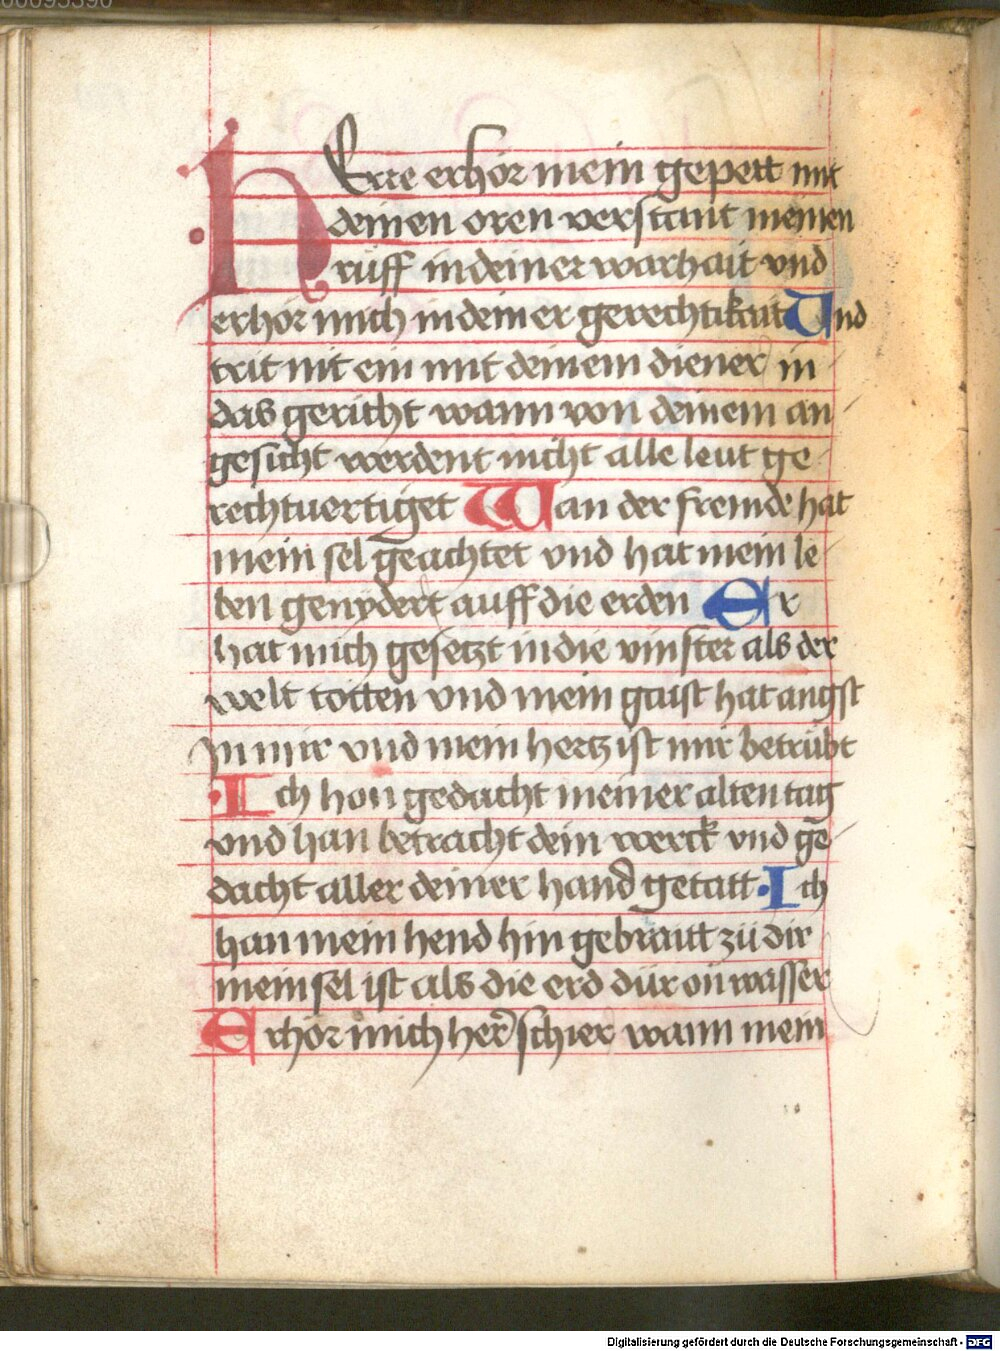 00095390
HErre erhör mein gepett mit
deinen oren verstant meinen
rüff in deiner warhait vnd
erhör mich in dein er gerechtikait Vnd
trit nit ein mit deinem diener in
das gericht wann von deinem an
gesicht werdent nicht alle leut ge
rechtuertiget Wan der freinde hat
mein sel geachtet vnd hat mein le
ben genydert auff die erden Er
hat mich gesetzt in die vinster als der
welt totten vnd mein gaist hat angst
in mir vnd mein hertz ist mir betrübt
Ich hon gedacht meiner alten tag
vnd han betracht dein werck vnd ge
dacht aller deiner hand getatt Ich
han mein hend hin gebraitt zü dir
mein sel ist als die erd dür on wasser
Erhör mich her schier wann mein
Digitalisierung gefördert durch die Deutsche Forschungsgemeinschaft - DFG